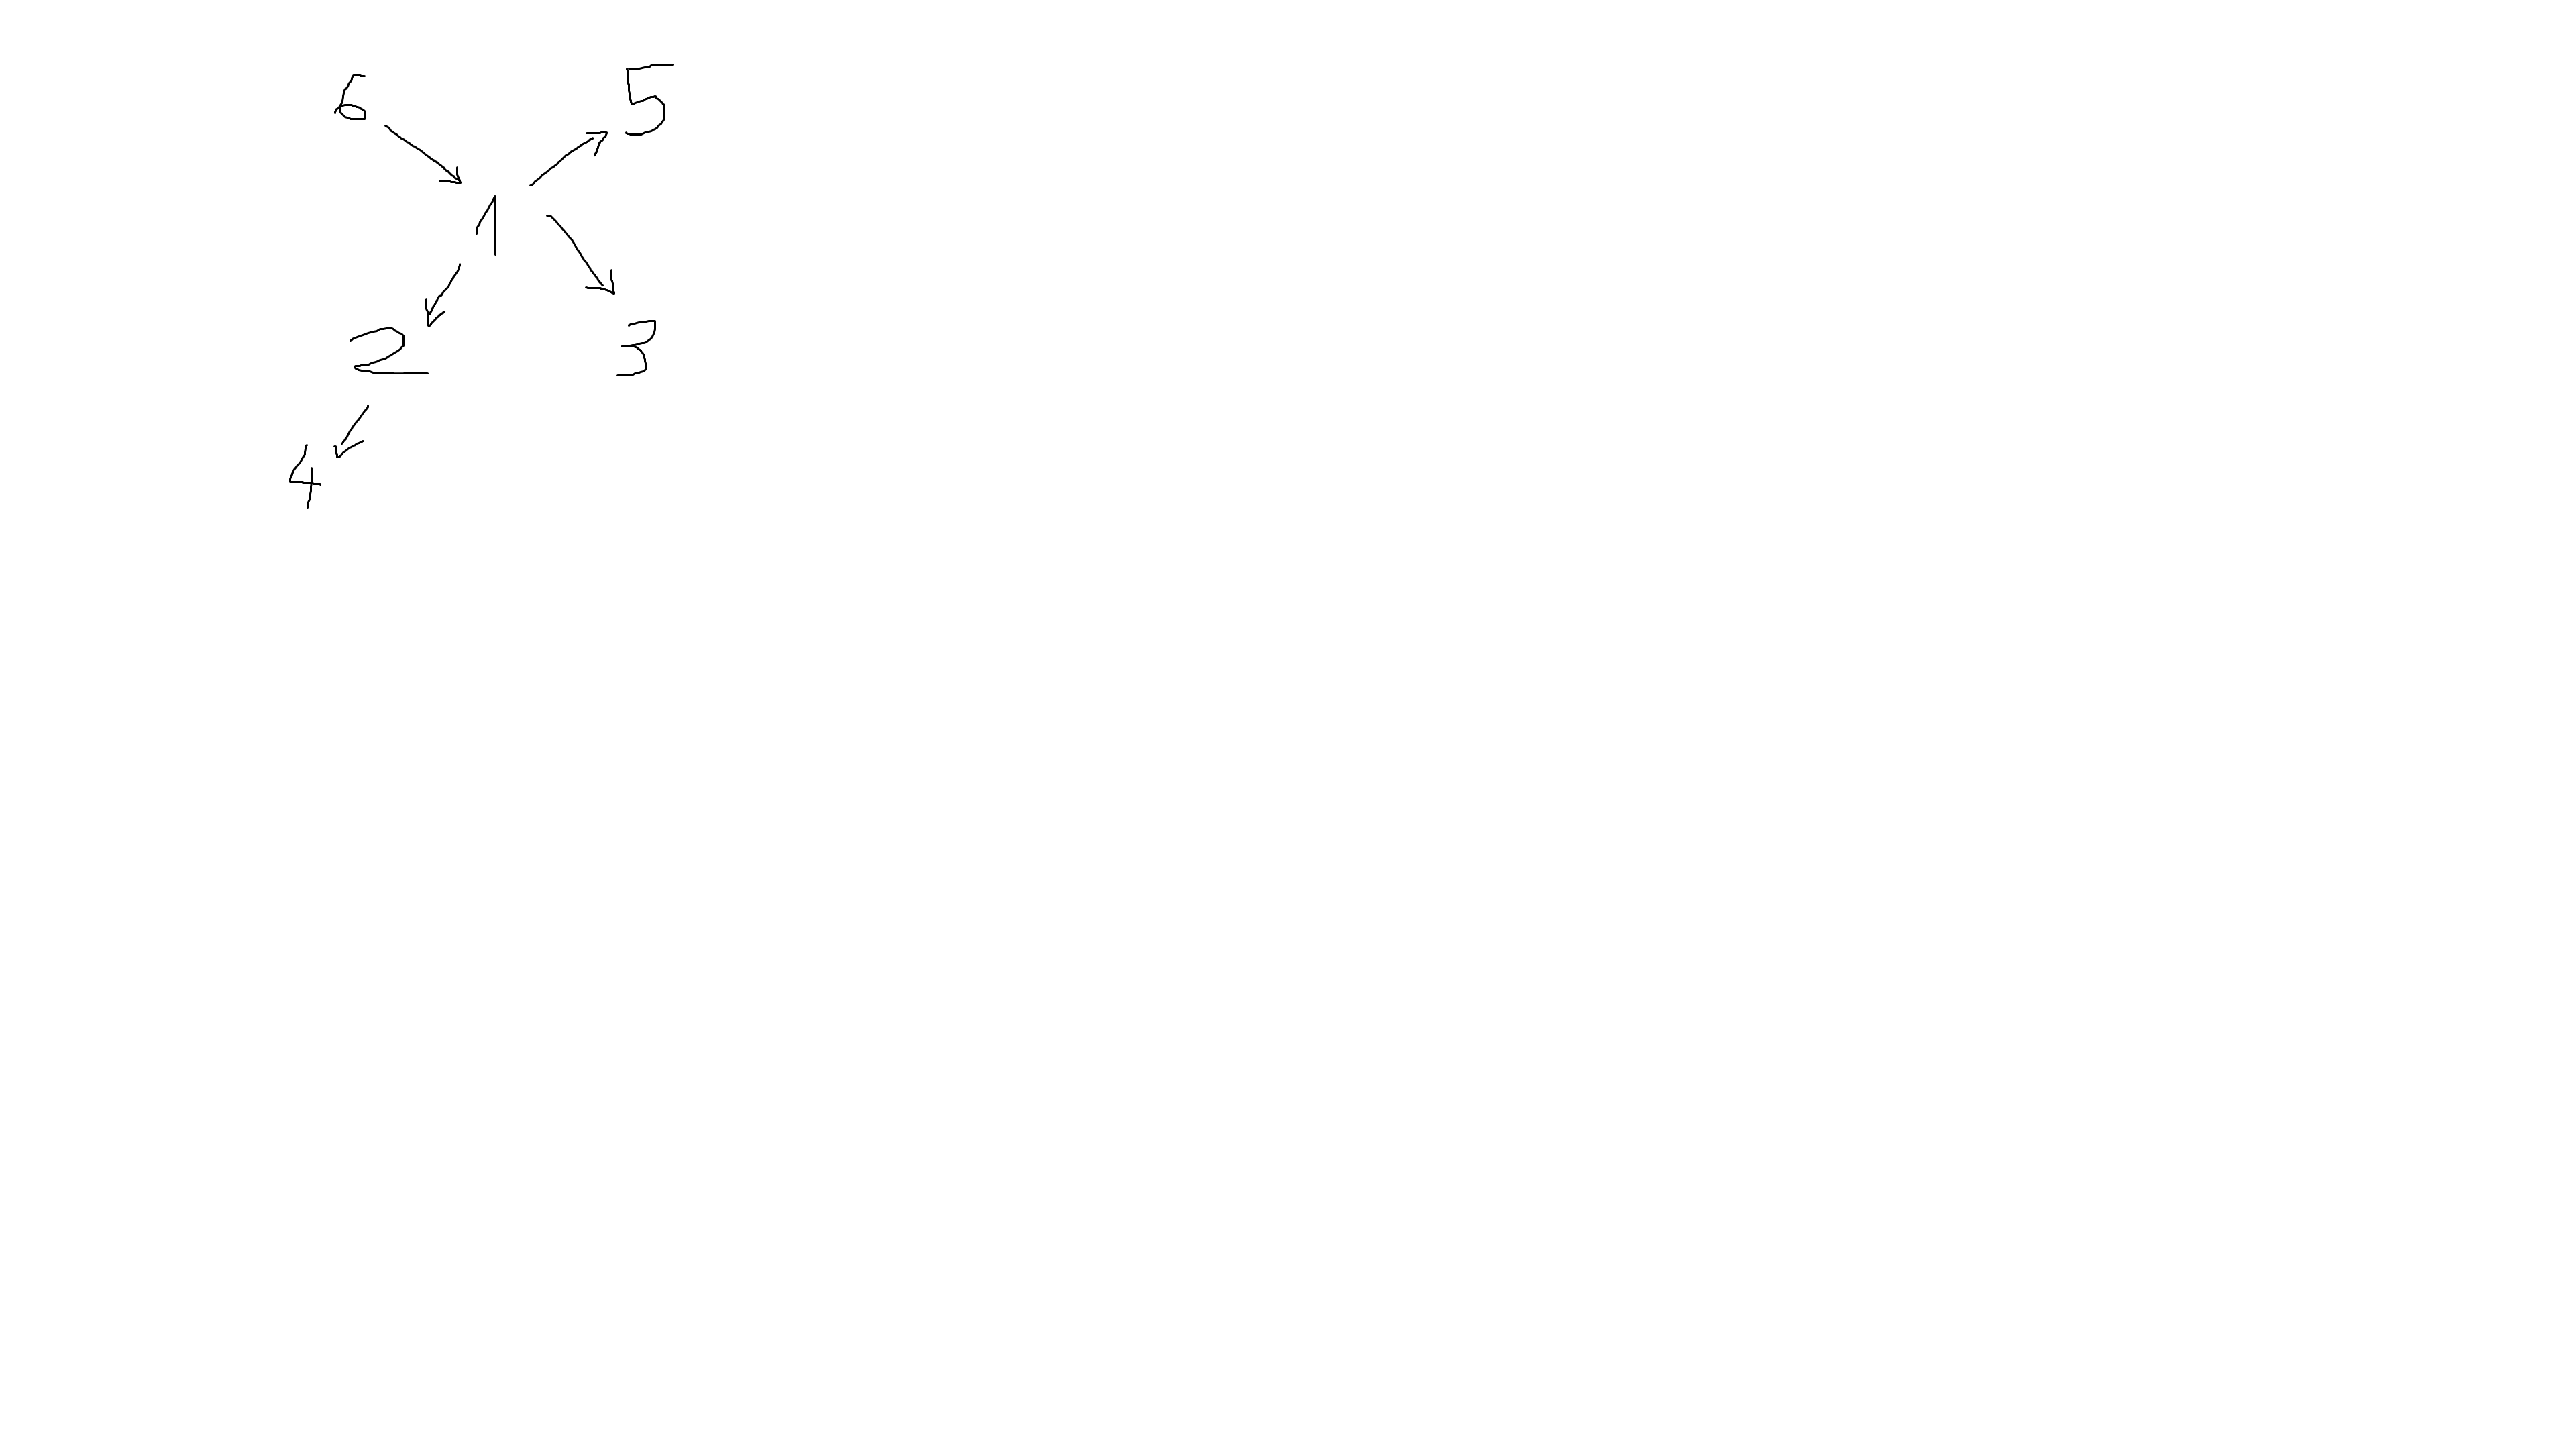 6 5
1
2 3
4